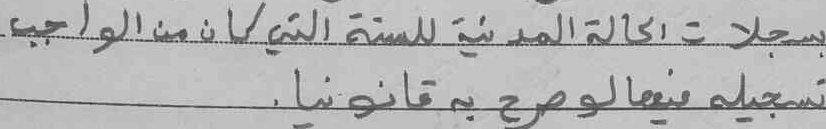 بسجلات الحالة المدنية للسنة التي كان من الواجب
تسجيله فيها لو صرح به قانونيا.